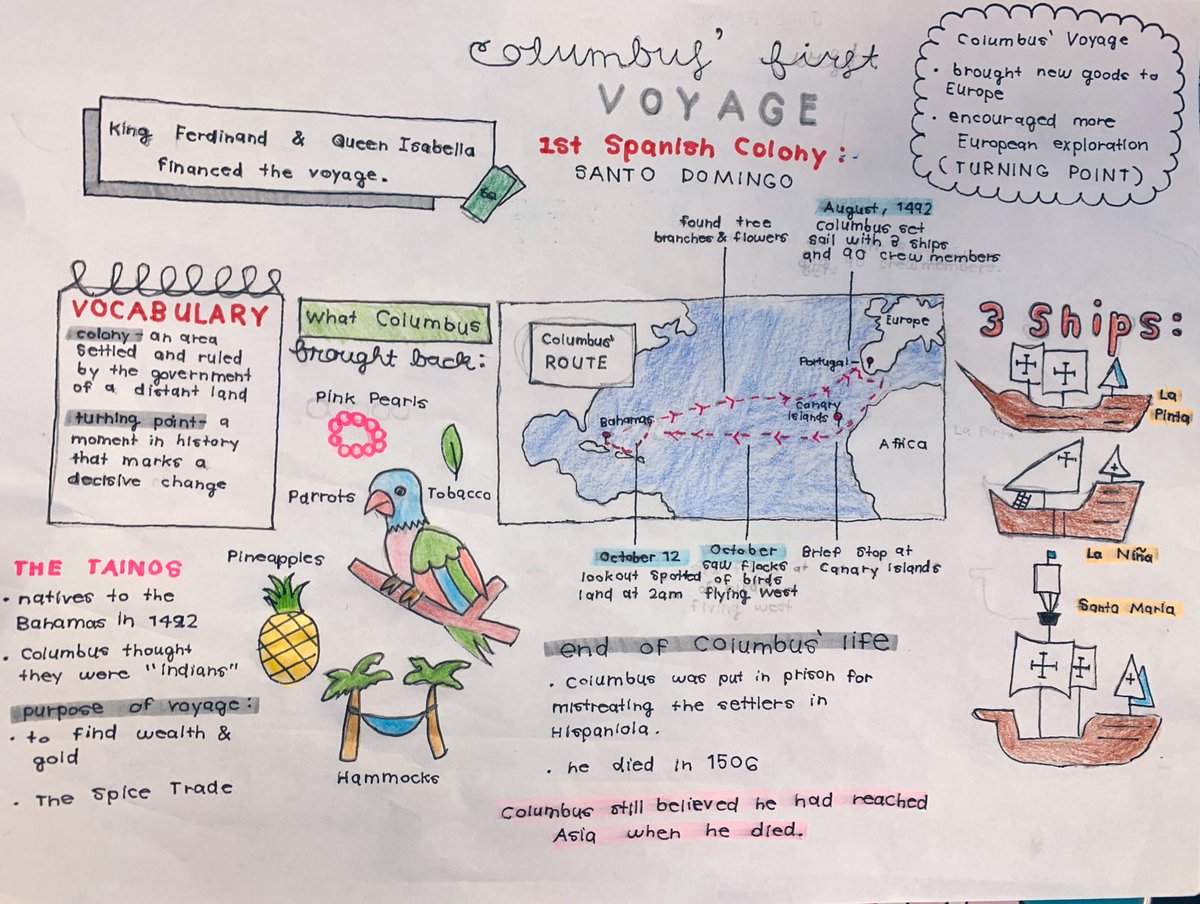 Columbus' first
VOYAGE
1st Spanish Colony:
SANTO DOMINGO
King Ferdinand & Queen Isabella
financed the voyage.
Columbus' Voyage
• brought new goods to
Europe
• encouraged more
European exploration
(TURNING POINT)
VOCABULARY
colony - an area
settled and ruled
by the government
of a distant land
turning point - a
moment in history
that marks a
decisive change
What Columbus
brought back:
Pink Pearls
Parrots
Tobacco
Pineapples
Hammocks
found tree
branches & flowers
August, 1492
Columbus set
sail with 3 ships
and 90 crew members
Columbus'
ROUTE
Europe
Portugal
Canary
Islands
Bahamas
Africa
October 12
lookout spotted
land at 2am
October
saw flocks
of birds
flying west
Brief stop at
Canary Islands
3 Ships:
La
Pinta
La Niña
Santa Maria
THE TAINOS
• natives to the
Bahamas in 1492
• Columbus thought
they were "Indians"
purpose of voyage:
• to find wealth &
gold
• The Spice Trade
end of Columbus' life
• Columbus was put in prison for
mistreating the settlers in
Hispaniola.
• he died in 1506
Columbus still believed he had reached
Asia when he died.